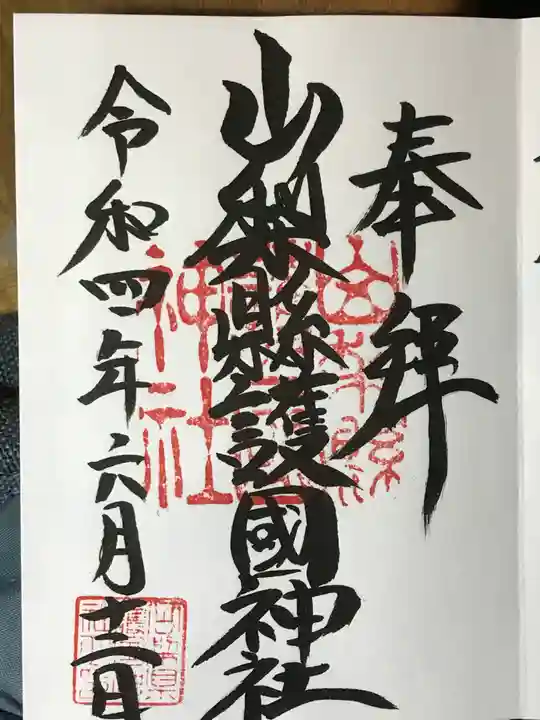 奉拜
山梨縣護國神社
令和四年六月十二日